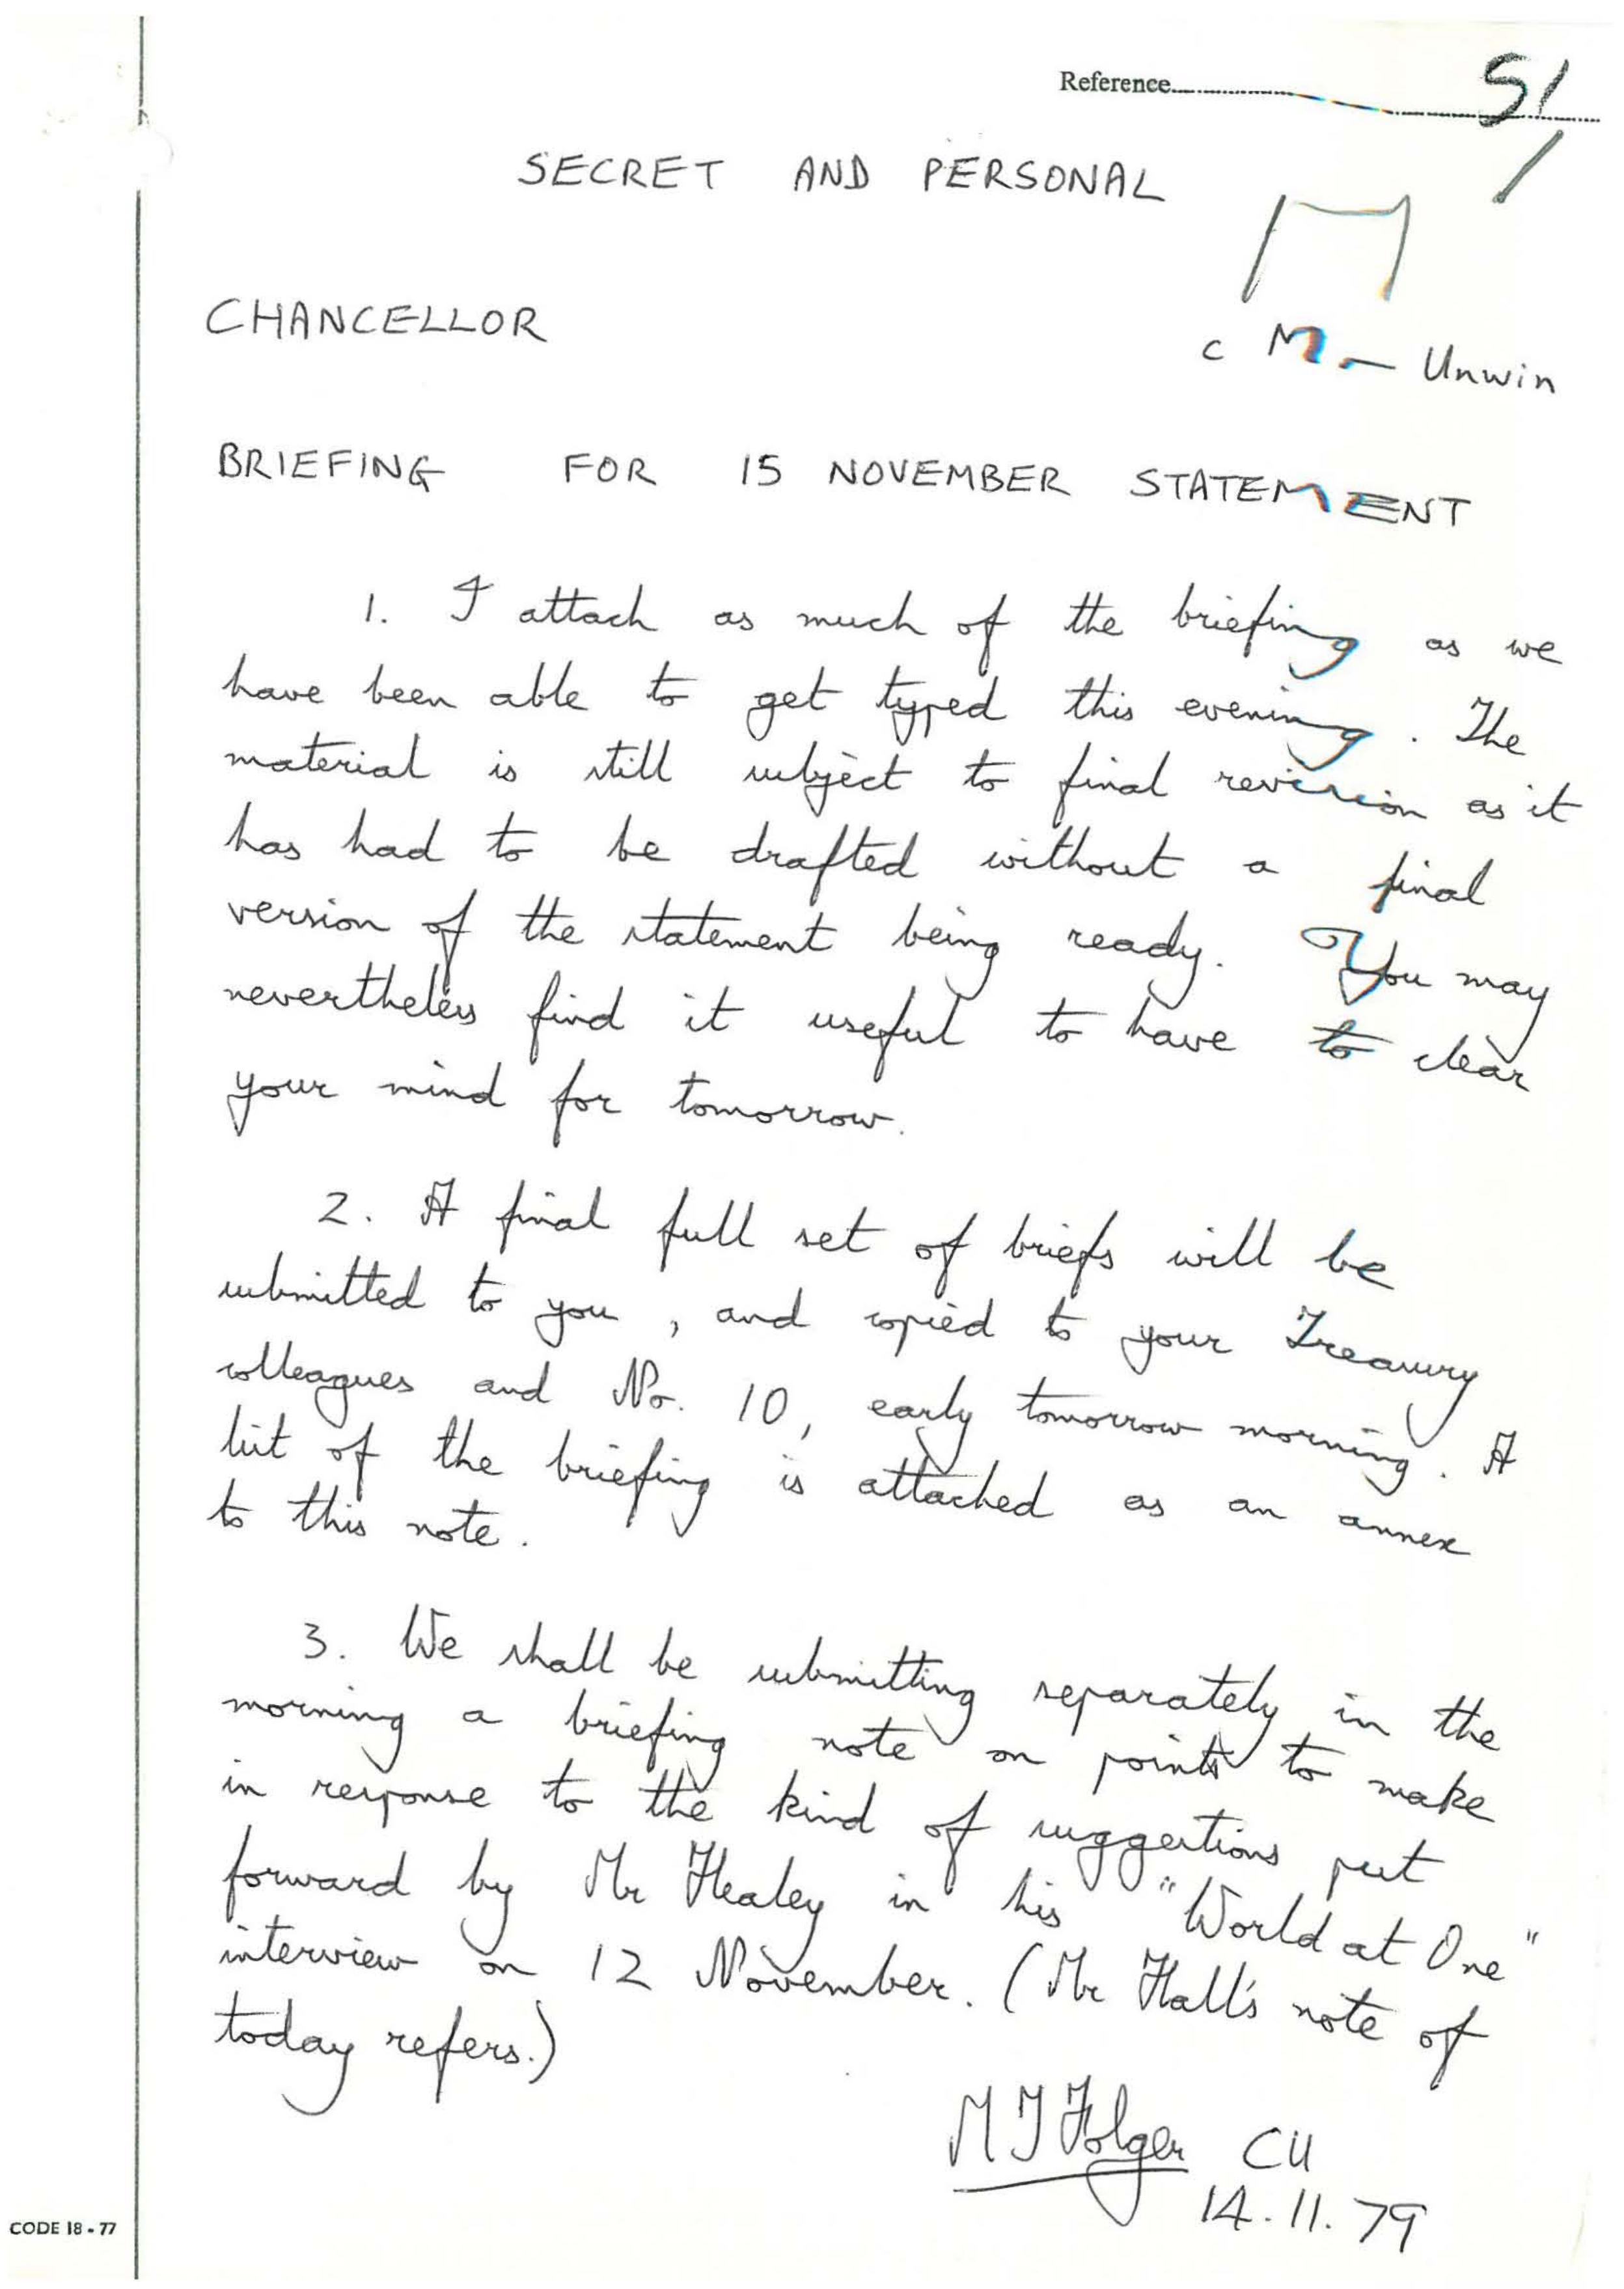 Reference
51
SECRET AND PERSONAL
CHANCELLOR
c Mr Unwin
BRIEFING FOR 15 NOVEMBER STATEMENT
1. I attach as much of the briefing as we
have been able to get typed this evening. The
material is still subject to final revision as it
has had to be drafted without a final
version of the statement being ready. You may
nevertheless find it useful to have to clear
your mind for tomorrow.
2. A final full set of briefs will be
submitted to you, and copied to your Treasury
colleagues and No. 10, early tomorrow morning. A
list of the briefing is attached as an annex
to this note.
3. We shall be submitting separately in the
morning a briefing note on points to make
in response to the kind of suggestions put
forward by Mr Healey in his "World at One"
interview on 12 November. (Mr Hall's note of
today refers.)
M J Folger CU
14.11.79
CODE 18-77